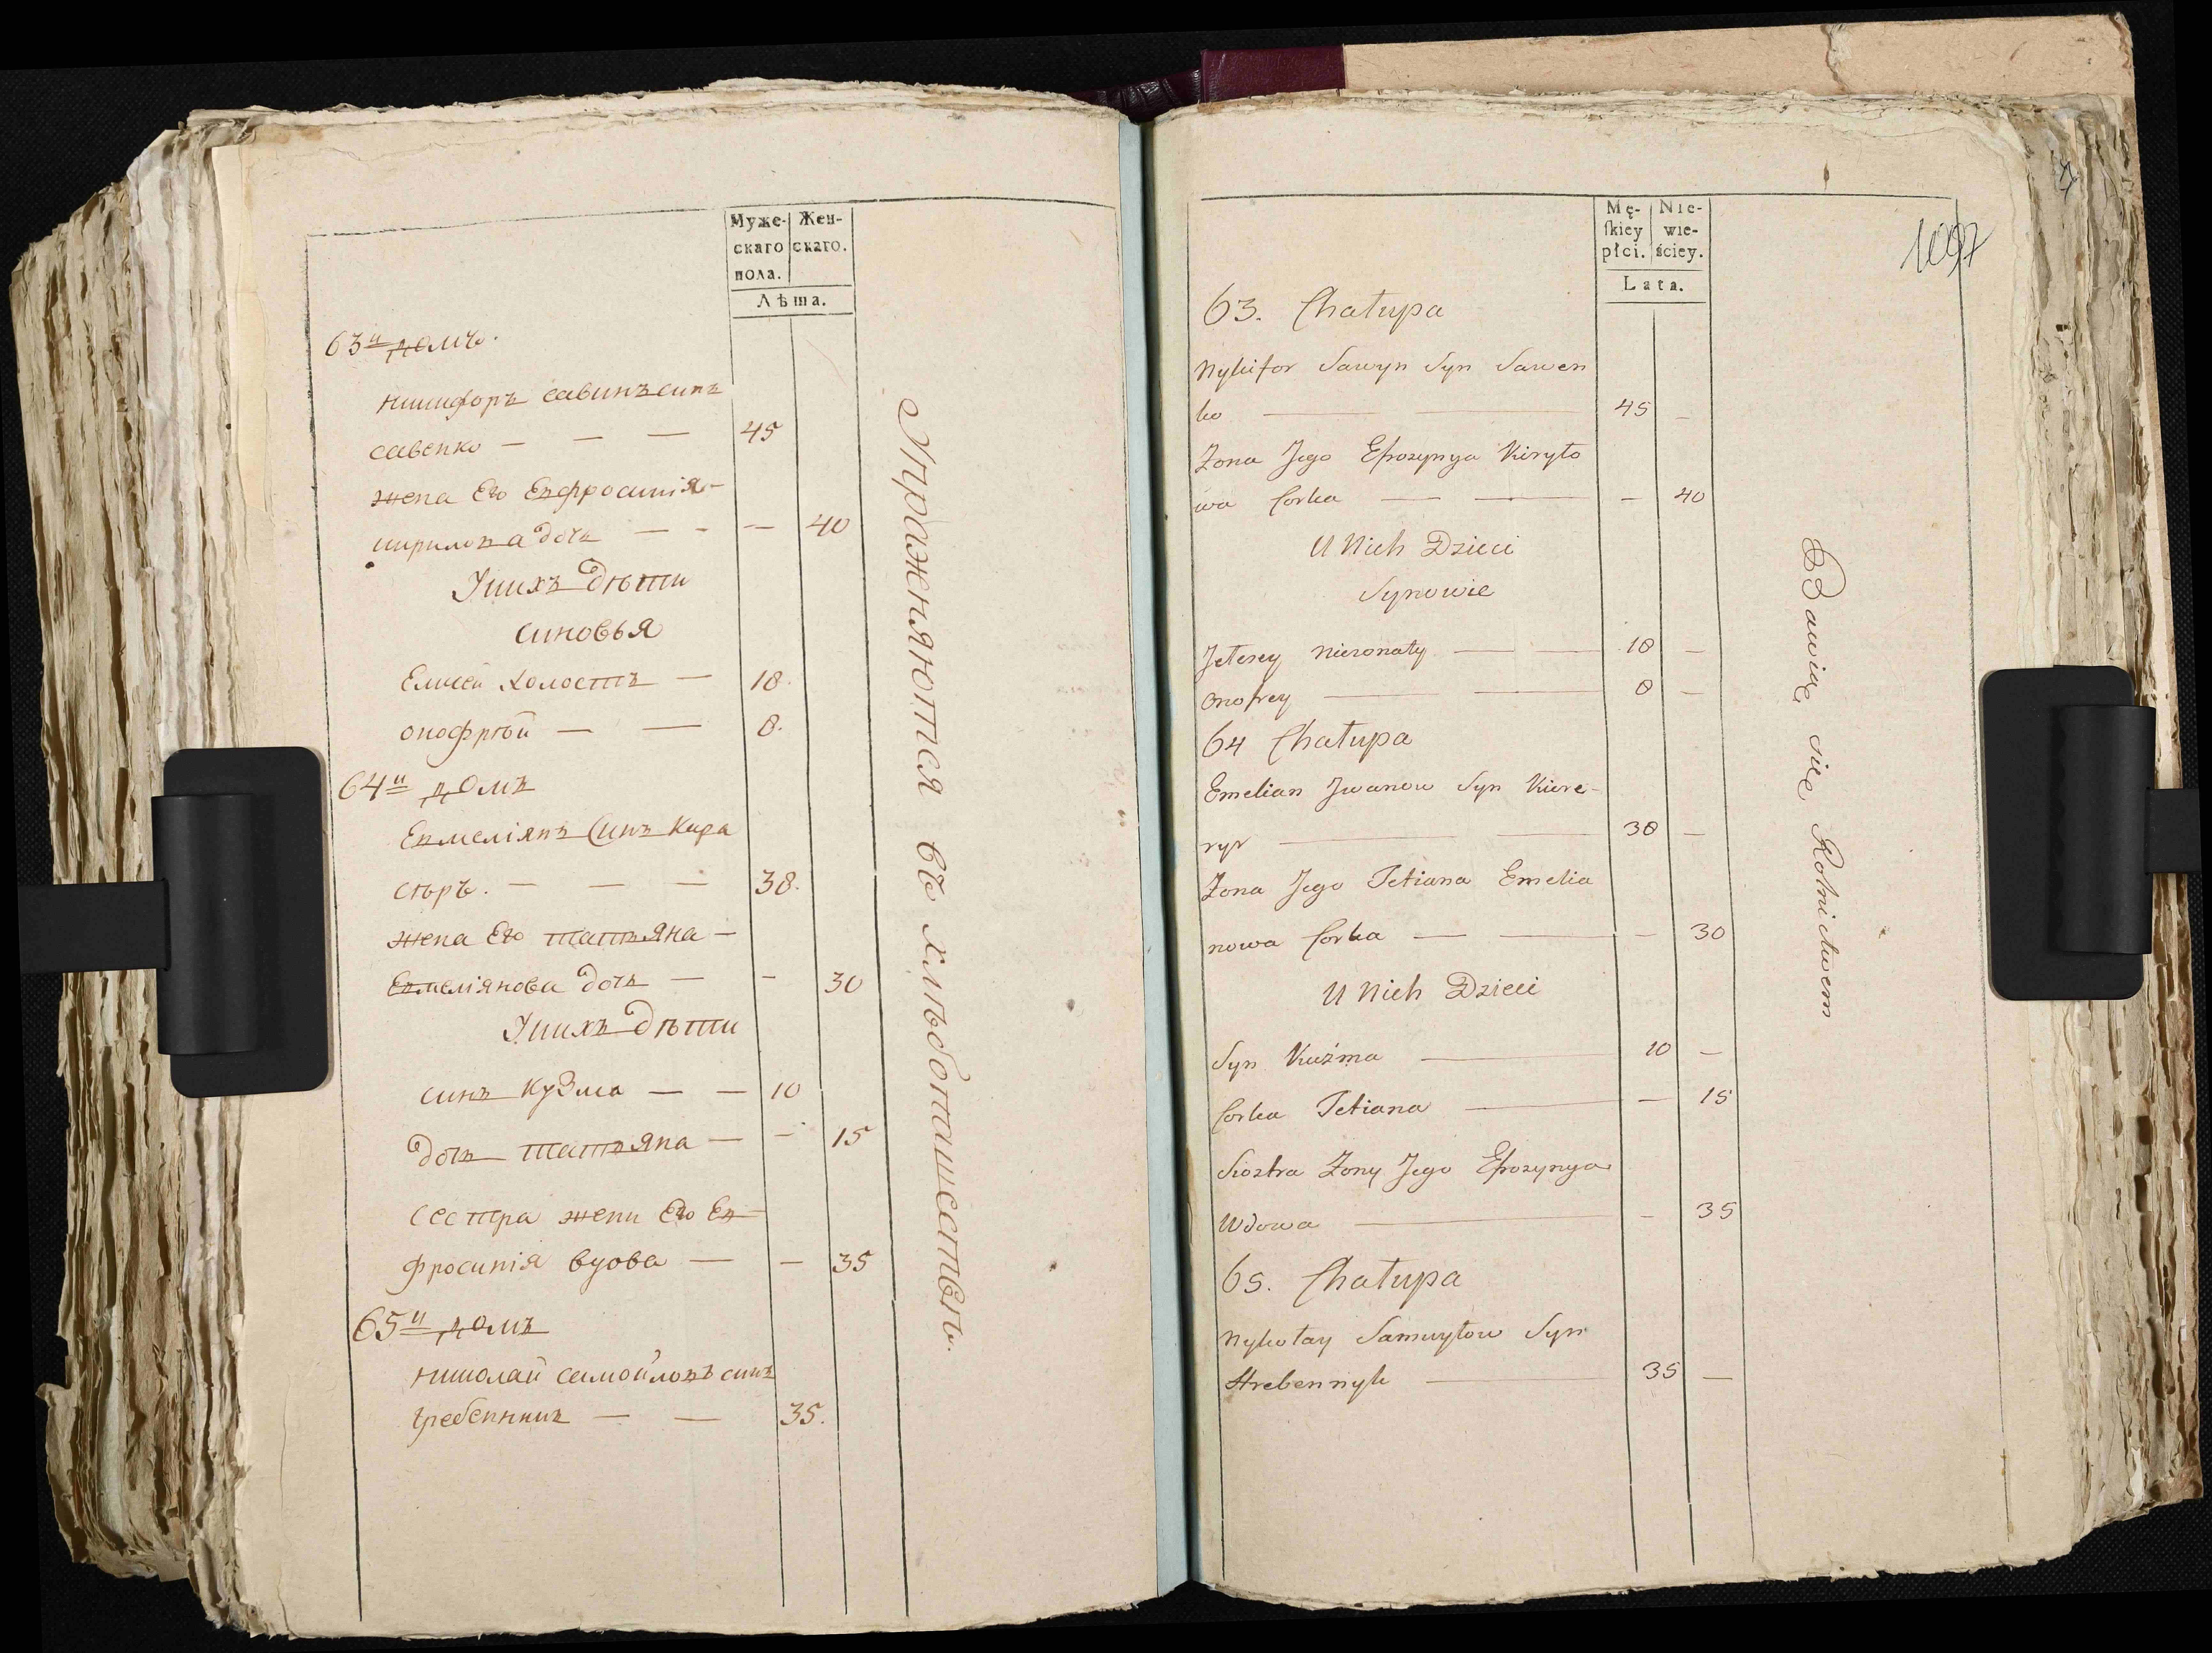 Муже-
скаго
пола.
Жен-
скаго.
Лѣта.
63й домъ.
никифоръ савинъ синъ
савенко — — — 45
жена Его Евфросинія
кирилова дочь — - — 40
Унихъ дѣти
синовья
Елисей холостъ — 18.
онофрѣй — — 8.
64й домъ
Емеліянъ Синъ Кира
сѣръ. — — — 38.
жена Его татьяна —
Емеліянова дочь — - 30
Унихъ дѣти
синъ кузма — — 10
дочь татьяна — — 15
сестра жени Его Ев
фросинія вдова — — 35
65й домъ
николай самойловъ синъ
гребенникъ — — 35.
Упражняются въ хлѣбопашествѣ.
Mę-
ſkiey
płci.
Nie-
wie-
ściey.
Lata.
1097
63. Chałupa
Nykifor Sawyn Syn Sawen
ko — — 45 —
Zona Jego Efrozynya Kiryło
wa Corka — — — 40
U Nich Dzieci
Synowie
Jelesey nieżonaty — — 18 —
Onofrey — — 8 —
64 Chałupa
Emelian Jwanow Syn Kiere-
syr — — 38 —
Zona Jego Tetiana Emelia
nowa Corka — — — 30
U Nich Dzieci
Syn Kuźma — 10 —
Corka Tetiana — — 15
Siostra Zony Jego Efrozynya
Wdowa — — 35
65. Chałupa
Nykołay Samuyłow Syn
Hrebennyk — 35 —
Bawią się Rolnictwem